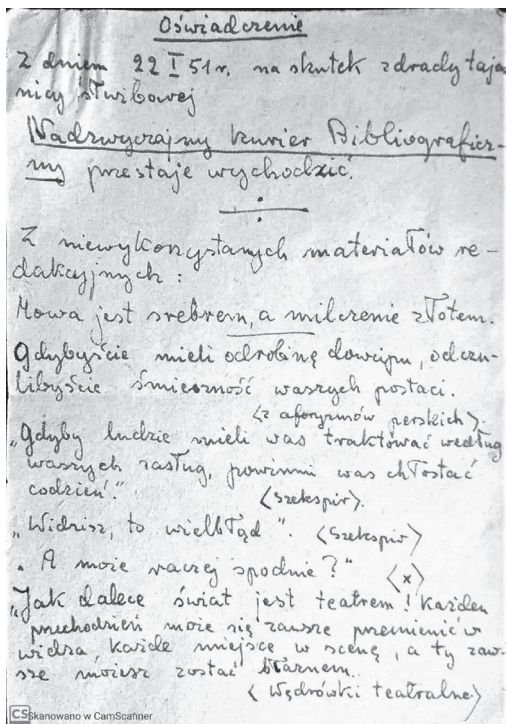 Oświadczenie
Z dniem 22 I 51 r. na skutek zdrady taje-
nicy służbowej
Nadzwyczajny kurier Bibliograficz-
ny przestaje wychodzić.
Z niewykorzystanych materiałów re-
dakcyjnych :
Mowa jest srebrem, a milczenie złotem.
Gdybyście mieli odrobinę dowcipu, odczu-
libyście śmieszność waszych postaci.
<z aforyzmów perskich>
„Gdyby ludzie mieli was traktować według
waszych zasług, powinni was chłostać
codzień."
<Szekspir>.
„Widzisz, to wielbłąd". <Szekspir>
„A może raczej spodnie?" <x>
„Jak dalece świat jest teatrem! Każden
przechodzień może się zawsze przemienić w
widza, każde miejsce w scenę, a ty zaw-
sze możesz zostać błaznem.
<Wędrówki teatralne>
CS Skanowano w CamScanner